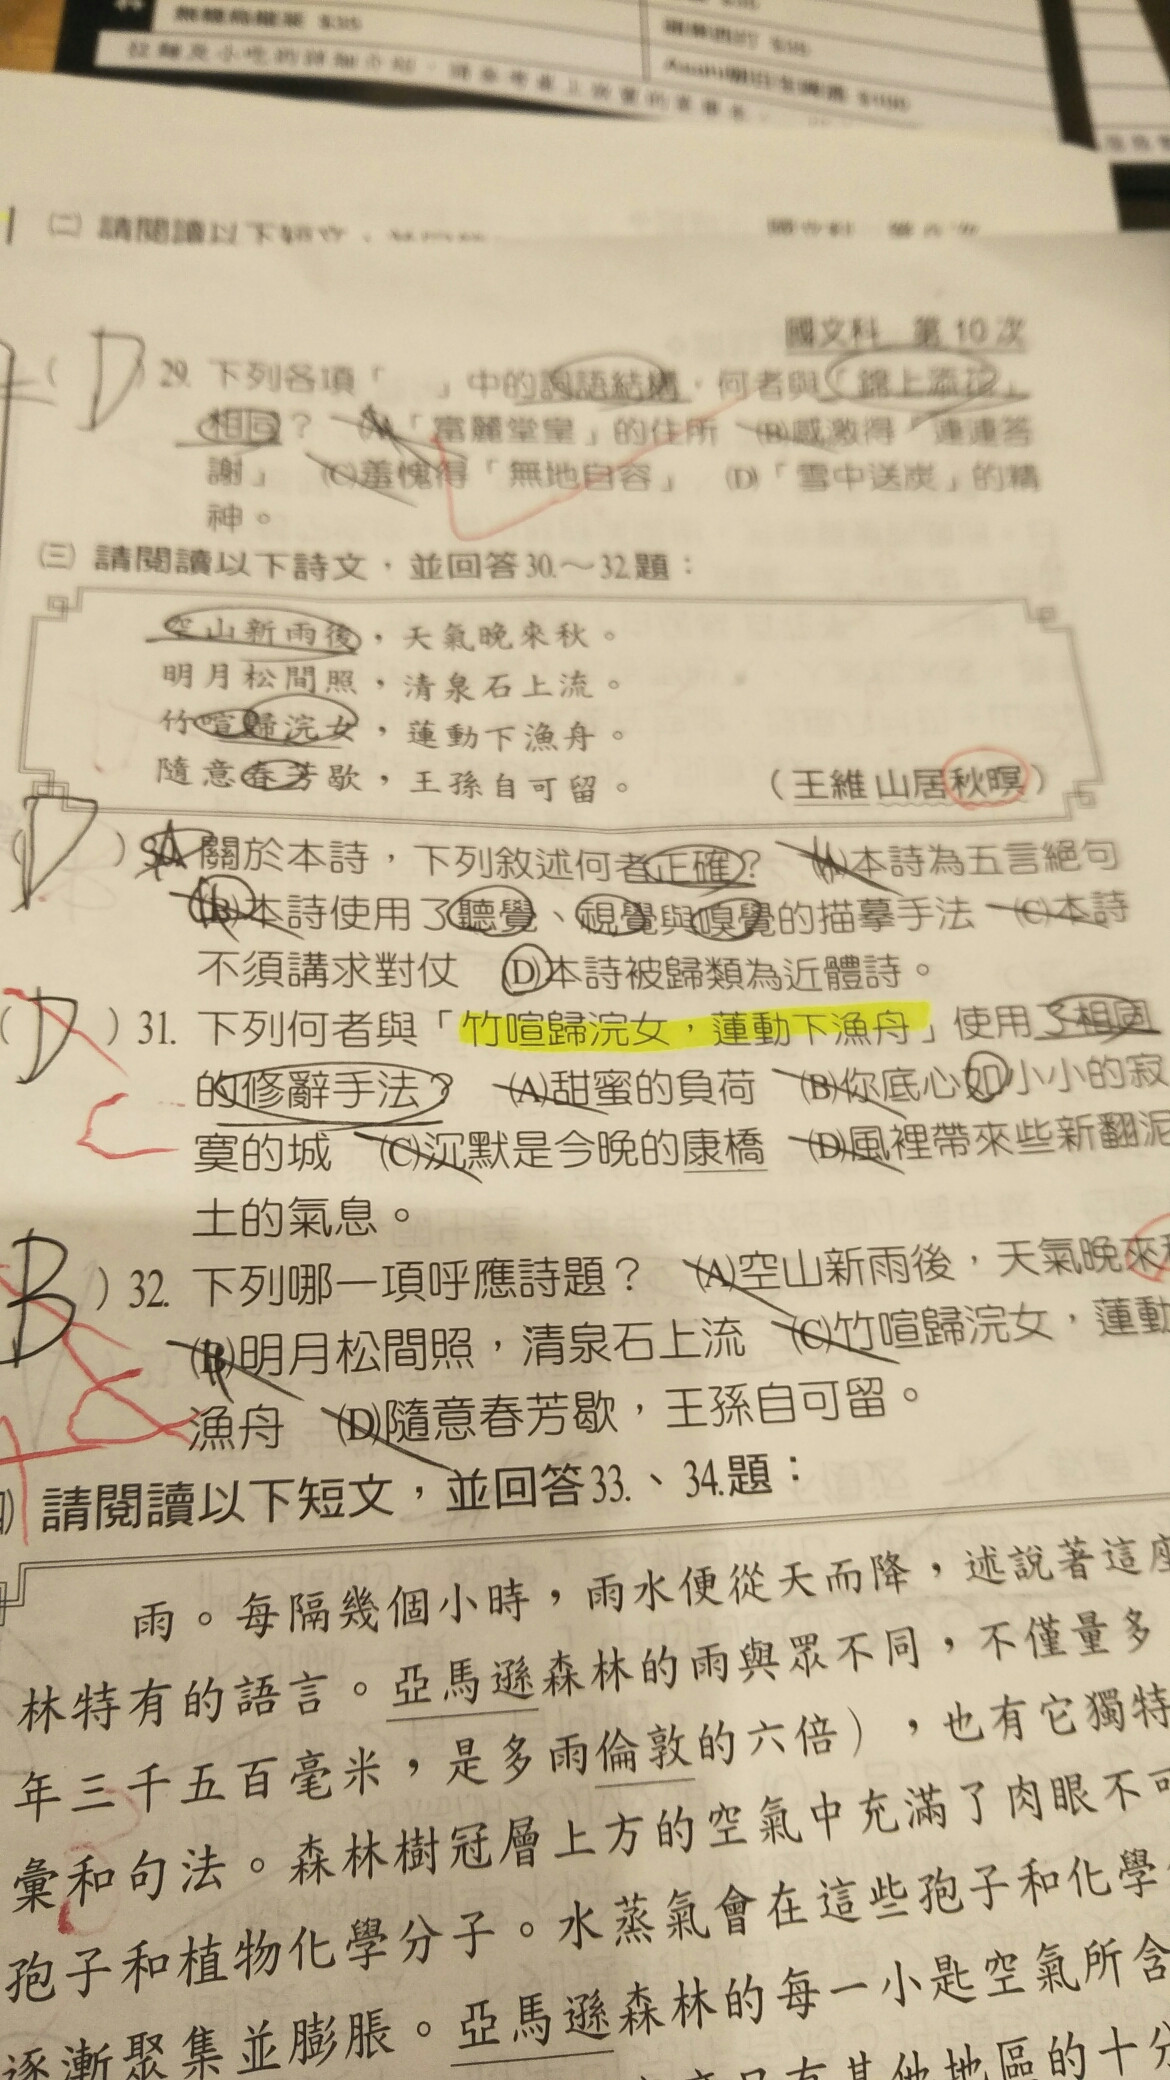 無糖烏龍茶 $35
(二) 請閱讀以下短文，並回答
國文科 第
國文科 第 10 次
( D ) 29. 下列各項「 」中的詞語結構，何者與「錦上添花」
相同？ (A)「富麗堂皇」的住所 (B)感激得「連連答
謝」 (C)羞愧得「無地自容」 (D)「雪中送炭」的精
神。
(三) 請閱讀以下詩文，並回答30.～32.題：
空山新雨後，天氣晚來秋。
明月松間照，清泉石上流。
竹喧歸浣女，蓮動下漁舟。
隨意春芳歇，王孫自可留。 （王維 山居秋暝）
( D ) 30. 關於本詩，下列敘述何者正確？ (A)本詩為五言絕句
(B)本詩使用了聽覺、視覺與嗅覺的描摹手法 (C)本詩
不須講求對仗 (D)本詩被歸類為近體詩。
( D ) 31. 下列何者與「竹喧歸浣女，蓮動下漁舟」使用了相同
C
的修辭手法？ (A)甜蜜的負荷 (B)你底心如小小的寂
寞的城 (C)沉默是今晚的康橋 (D)風裡帶來些新翻泥
土的氣息。
B ) 32. 下列哪一項呼應詩題？ (A)空山新雨後，天氣晚來
(B)明月松間照，清泉石上流 (C)竹喧歸浣女，蓮動
漁舟 (D)隨意春芳歇，王孫自可留。
) 請閱讀以下短文，並回答33.、34.題：
雨。每隔幾個小時，雨水便從天而降，述說著這座
林特有的語言。亞馬遜森林的雨與眾不同，不僅量多
年三千五百毫米，是多雨倫敦的六倍），也有它獨特
彙和句法。森林樹冠層上方的空氣中充滿了肉眼不可
孢子和植物化學分子。水蒸氣會在這些孢子和化學
逐漸聚集並膨脹。亞馬遜森林的每一小匙空氣所含
其他地區的十分